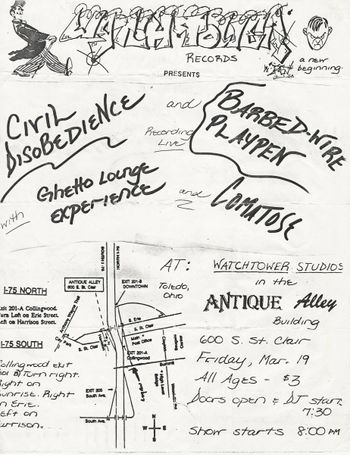 WATCHTOWER
RECORDS
a new
beginning
PRESENTS
CIVIL
DISOBEDIENCE
and
BARBED-WIRE
PLAYPEN
Recording
Live
Ghetto Lounge
Experience
and
COMATOSE
with
AT:
WATCHTOWER STUDIOS
in the
ANTIQUE Alley
Building
Toledo,
Ohio
600 S. St. Clair
Friday, Mar. 19
All Ages - $3
Doors open & DJ start
7:30
Show starts 8:00 PM
I-75 NORTH
201-A Collingwood.
Left on Erie Street.
on Harrison Street.
I-75 SOUTH
Collingwood exit
Turn right.
Right on
Right
on Erie.
Left on
ANTIQUE ALLEY
600 S. St. Clair
EXIT 201-B
DOWNTOWN
S. Erie
S. St. Clair
Main
Post
Office
EXIT 201-A
Collingwood
EXIT 200
South Ave.
South Ave.
N
W
E
S